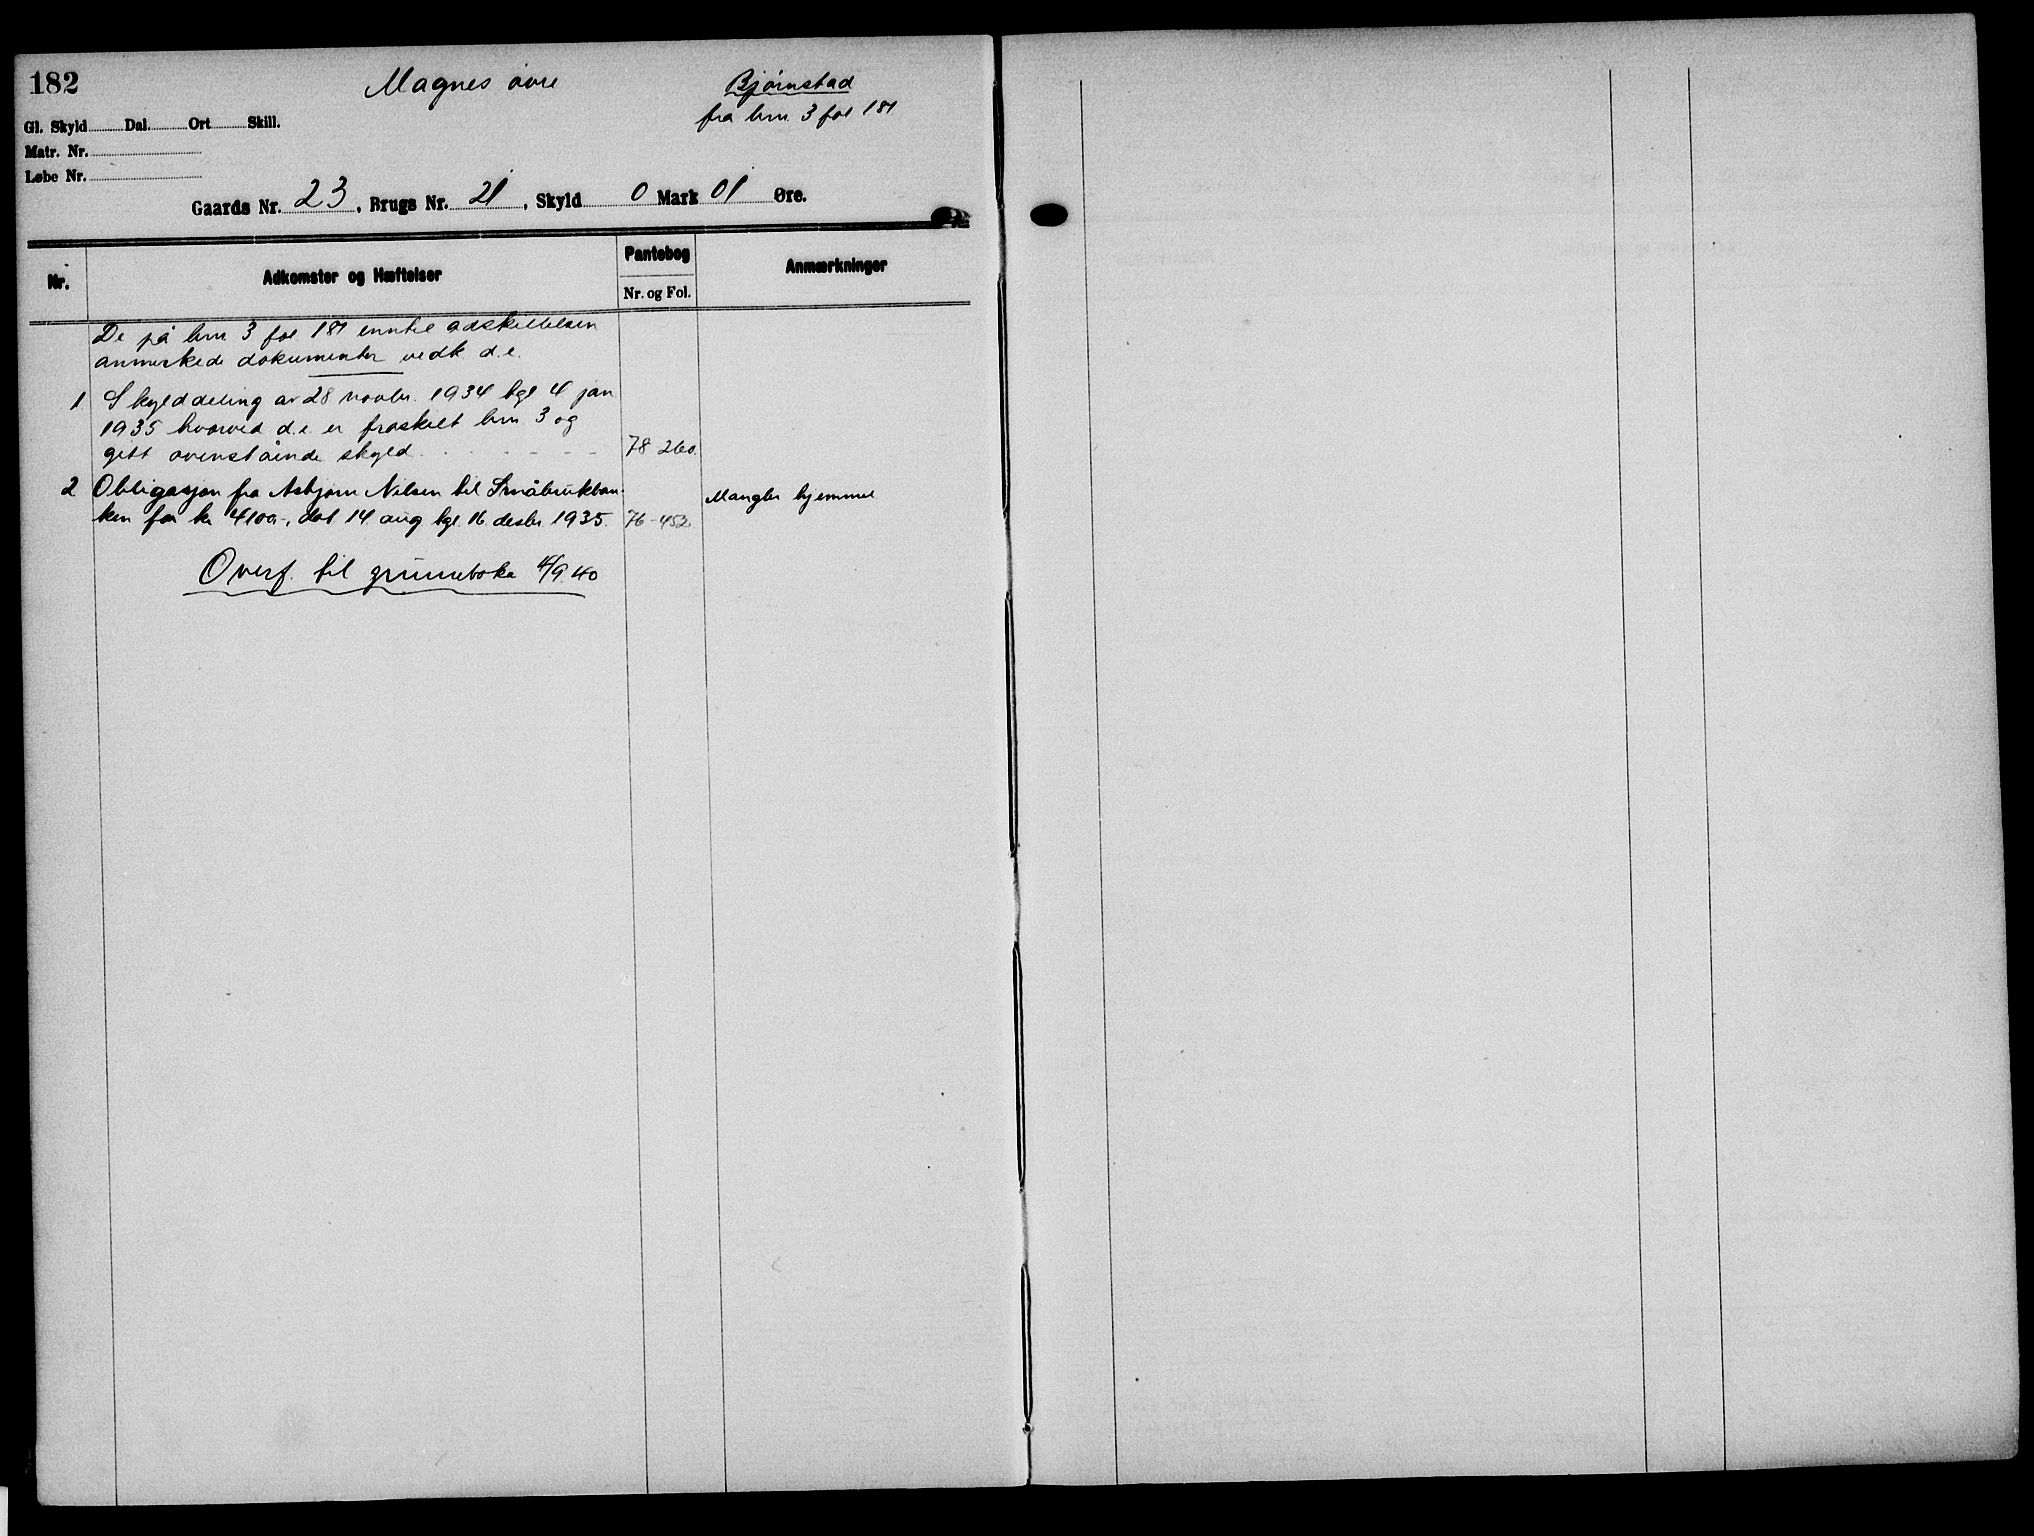 182
Magnes øvre
Bjørnstad
fra brn. 3 fol 181
Gl. Skyld Dal. Ort Skill.
Matr. Nr.
Løbe Nr.
Gaards Nr. 23, Brugs Nr. 21, Skyld 0 Mark 01 Øre.
Nr. Adkomster og Hæftelser Pantebog Anmærkninger
Nr. og Fol.
De på brn 3 fol 181 inntil adskillelsen
anmerkede dokumenter vedk. d.e.
1 Skylddeling av 28 novbr. 1934 tgl 4 jan
1935 hvorved d.e. er fraskilt brn 3 og
gitt ovenstående skyld. 78 260.
2 Obligasjon fra Asbjørn Nilsen til Småbrukban- Mangler hjemmel
ken for kr 4100-, dat 14 aug tgl. 16 desbr 1935. 76-452.
Overf. til grunneboka 4/9.40